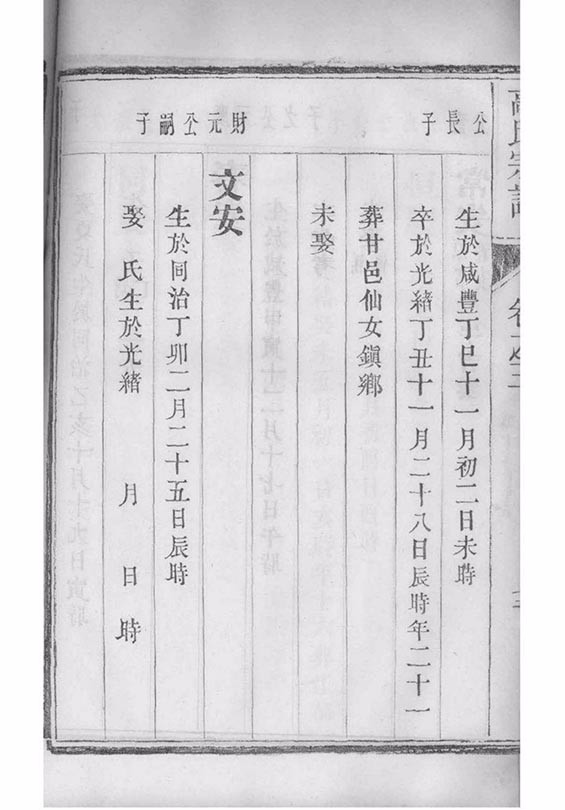 公長子
生於咸豐丁巳十一月初二日未時
卒於光緒丁丑十一月二十八日辰時年二十一
葬甘邑仙女鎮鄉
未娶
財元公嗣子
文安
生於同治丁卯二月二十五日辰時
娶 氏生於光緒 月 日 時